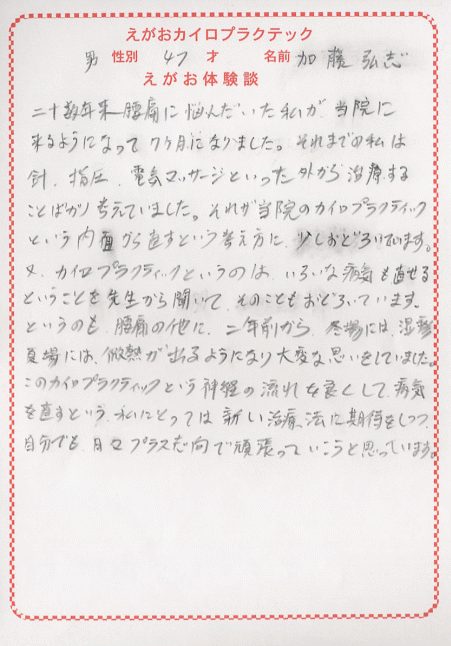 えがおカイロプラクテック
男 性別 47 才 名前 加藤弘志
えがお体験談
二十数年来腰痛に悩んだいた私が、当院に
来るようになって7ヶ月になりました。それまでの私は
針、指圧、電気マッサージといった外から治療する
ことばかり考えていました。それが当院のカイロプラクティック
という内面から直すという考え方に、少しおどろいています。
又、カイロプラクティックというのは、いろいな病気も直せる
ということを先生から聞いて、そのこともおどろいています。
というのも、腰痛の他に、二年前から、冬場には、湿疹
夏場には、微熱が出るようになり大変な思いをしていました。
このカイロプラクティックという神経の流れを良くして、病気
を直すという、私にとっては新い治療法に期待をしつつ、
自分でも、日々プラスだ向で頑張っていこうと思っています。